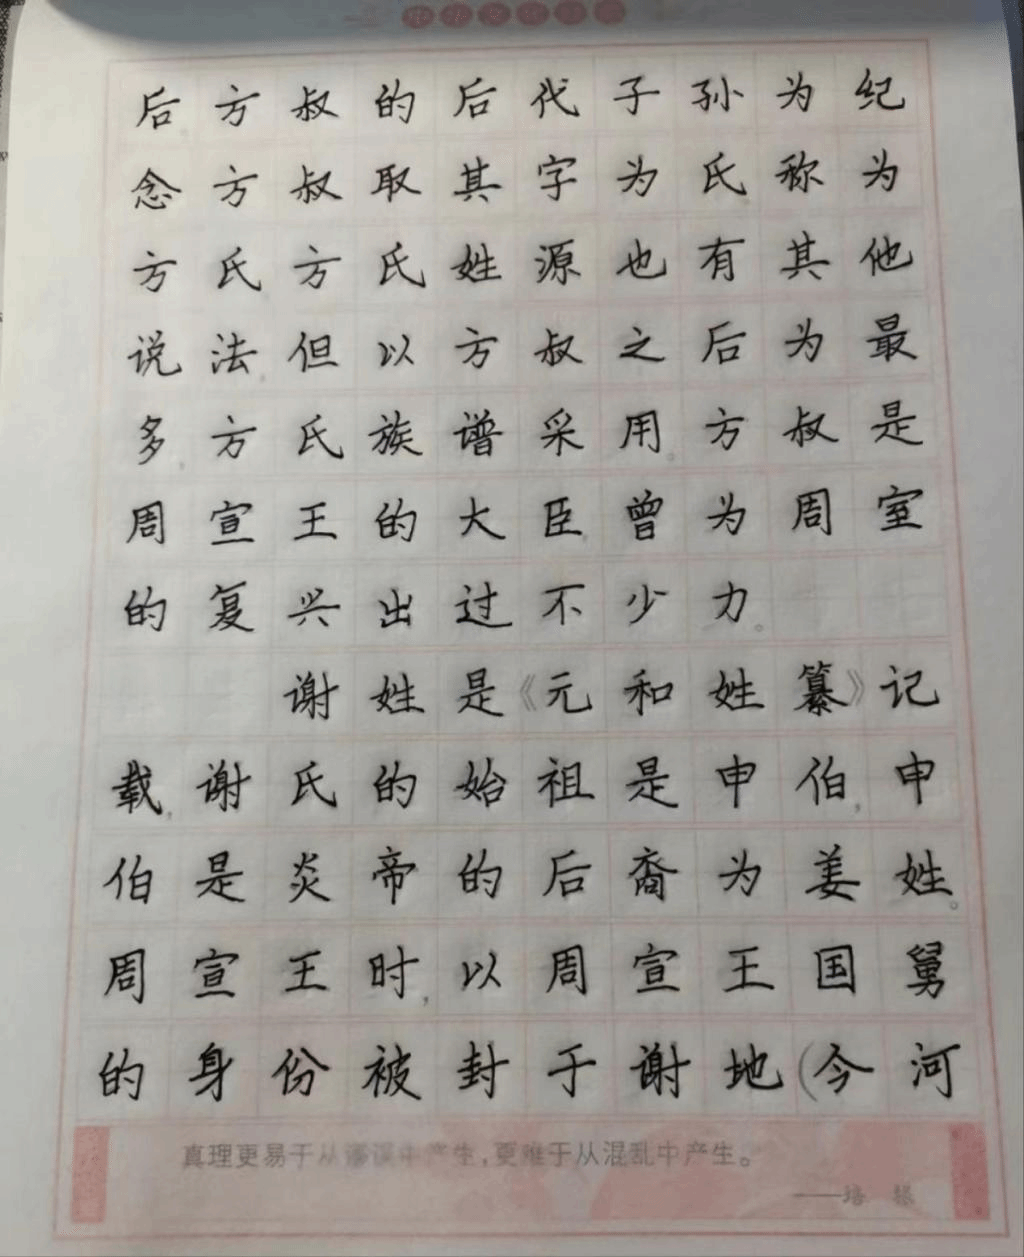 后方叔的后代子孙为纪
念方叔取其字为氏称为
方氏方氏姓源也有其他
说法但以方叔之后为最
多,方氏族谱采用。方叔是
周宣王的大臣曾为周室
的复兴出过不少力。
谢姓是《元和姓纂》记
载,谢氏的始祖是申伯,申
伯是炎帝的后裔为姜姓。
周宣王时,以周宣王国舅
的身份被封于谢地(今河
真理更易于从谬误中产生,更难于从混乱中产生。
——培根